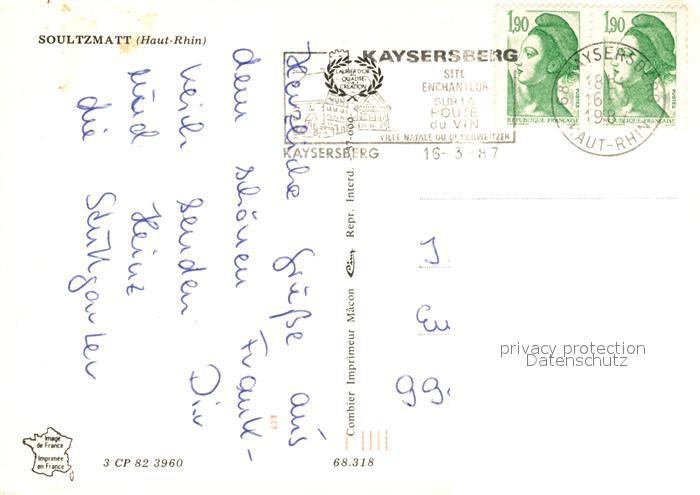 SOULTZMATT (Haut-Rhin)
Herzliche Grüße aus
dem schönen Frank-
reich senden Dir
und Heinz
die Stuttgarter
LAURIER D'OR
QUALITÉ
CRÉATION
KAYSERSBERG
SITE
ENCHANTEUR
SUR LA
ROUTE
du VIN
VILLE NATALE du Dr SCHWEITZER
KAYSERSBERG 16-3-87
1,90
1,90
POSTES
POSTES
REPUBLIQUE FRANÇAISE
REPUBLIQUE FRANÇAISE
HAUT-RHIN
Combier Imprimeur Mâcon Cim Repr. Interd.
J.
Eu
99.
privacy protection
Datenschutz
Image
de France
Imprimée
en France
3 CP 82 3960
68.318